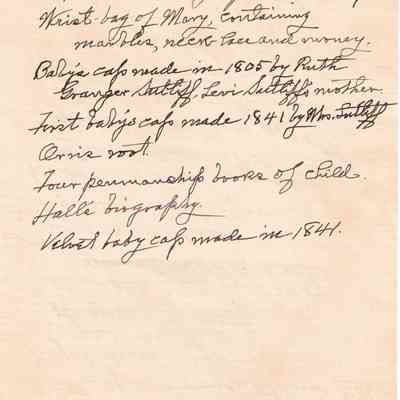 Wrist-bag of Mary, containing
marbles, neck-lace and money.
Baby's cap made in 1805 by Ruth
Granger Sutliff, Levi Sutliff's mother.
First baby's cap made 1841 by Mrs. Sutliff
Orris root.
Four penmanship books of child.
Hall's biography.
Velvet baby cap made in 1841.